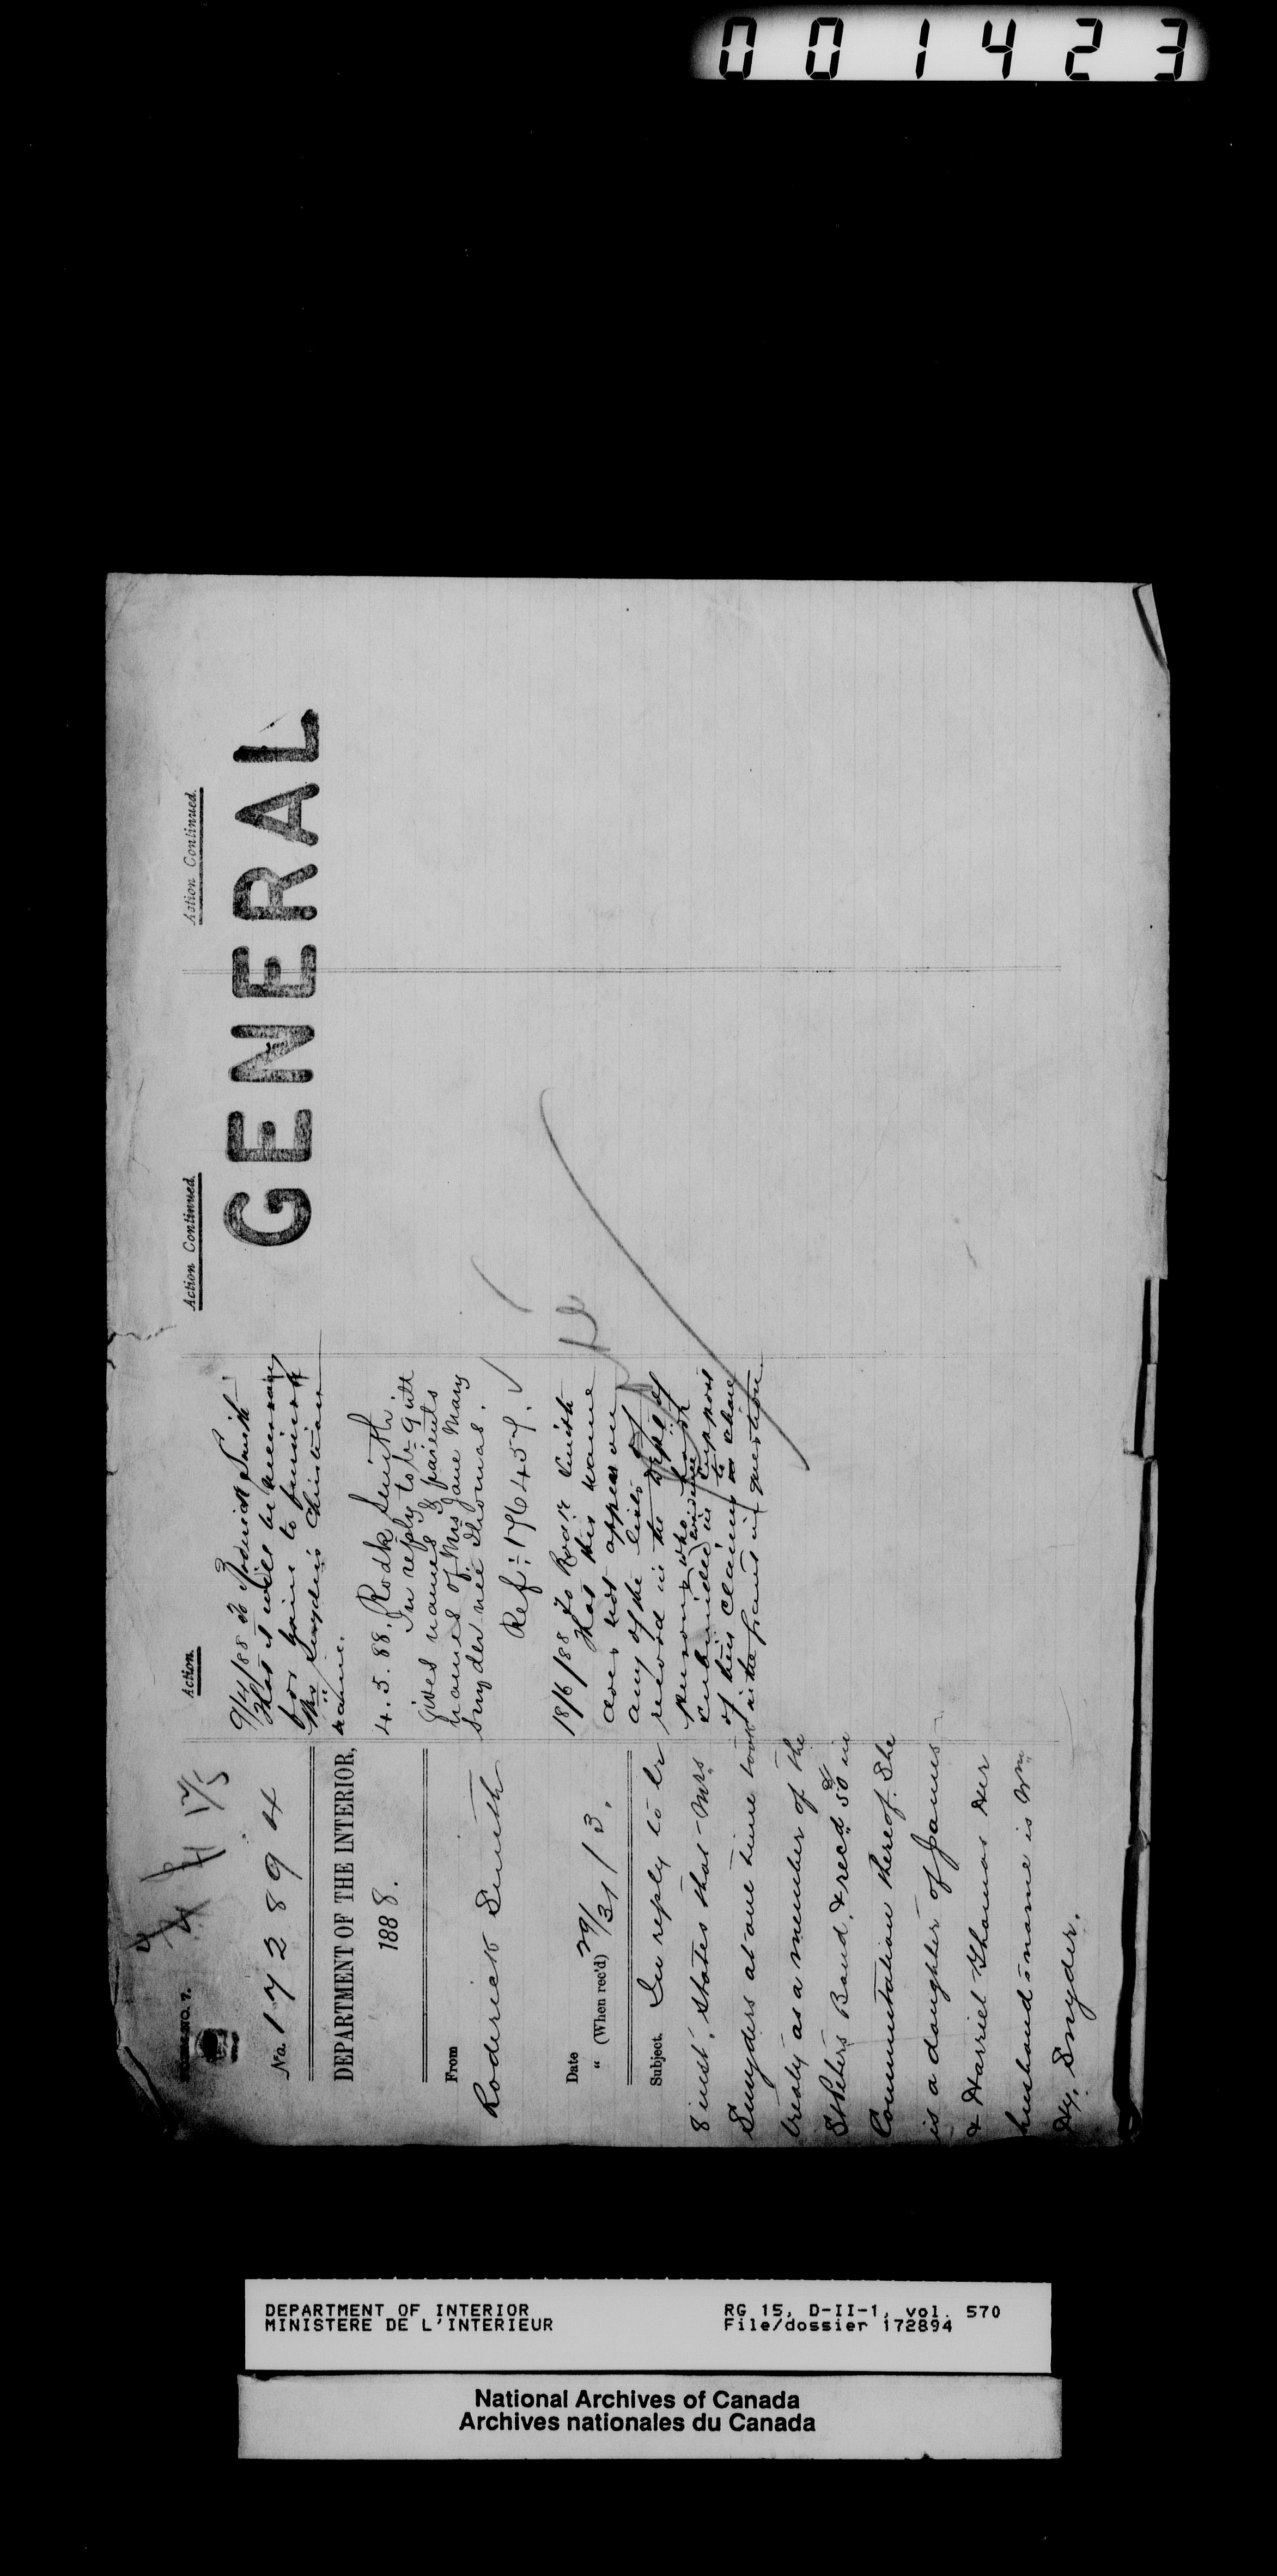 001423
FORM NO. 7.
No. 172894
DEPARTMENT OF THE INTERIOR,
1888.
From
Roderick Smith
Date 29/
" (When rec'd) 31/3.
Subject. In reply to lr
8 inst, states that Mrs
Snyders at one time took
treaty as a member of the
St Peters Band, & rec'd 50 in
Commutation thereof. She
is a daughter of James
& Harriet Thomas Her
husband's name is Wm
Hy. Snyder.
Action.
9/4/88 To Roderick Smith
that it will be necessary
for him to furnish
Mrs Snyders Christian
name.
4.5.88. Rodk Smith.
In reply to lr 9 ult
gives names & parents
names of Mrs Jane Mary
Snyder née Thomas.
Ref: 176457.
18/6/88 To Rodk Smith
that his name
does not appear on
any of the lists of
record in the Dept of
persons who have
submitted evidence in support
of their claims to share
in the grant in question.
Action Continued.
Action Continued.
GENERAL
DEPARTMENT OF INTERIOR
MINISTERE DE L'INTERIEUR
RG 15, D-II-1, vol. 570
File/dossier 172894
National Archives of Canada
Archives nationales du Canada